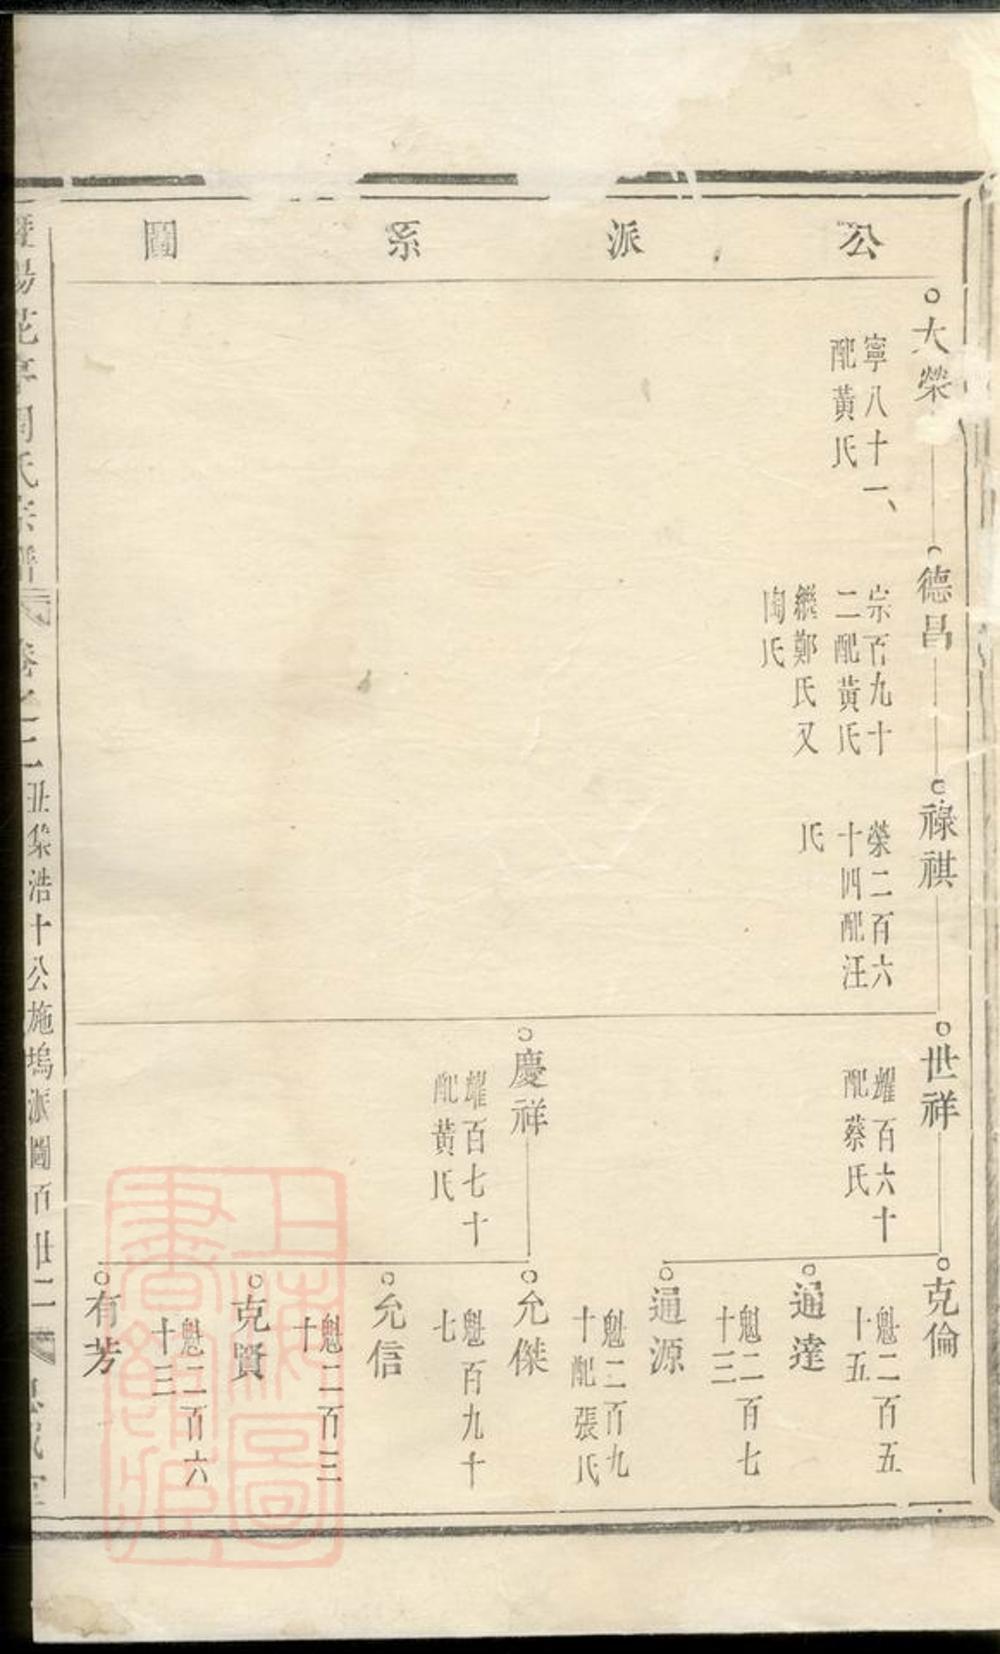 公派系圖
大榮
寧八十一
配黃氏
德昌
宗百九十
二配黃氏
繼鄭氏又
陶氏
祿祺
榮二百六
十四配汪
氏
世祥
耀百六十
配蔡氏
慶祥
耀百七十
配黃氏
克倫
魁二百五
十五
通達
魁二百七
十三
通源
魁二百九
十配張氏
允傑
魁百九十
七
允信
魁二百三
十
克賢
魁二百六
十三
有芳
暨陽花亭周氏宗譜
卷之二 丑集浩十公施塢派圖百廿二
上海圖書館藏